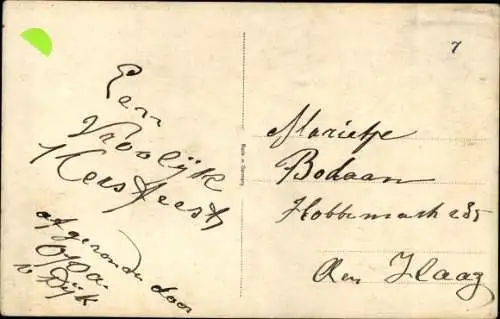 Een
Vroolijk
Kersfeest
afgezonden door
Opa
v Dijk
Made in Germany
7
Marietje
Bodaan
Hobbemastr 235
Den Haag